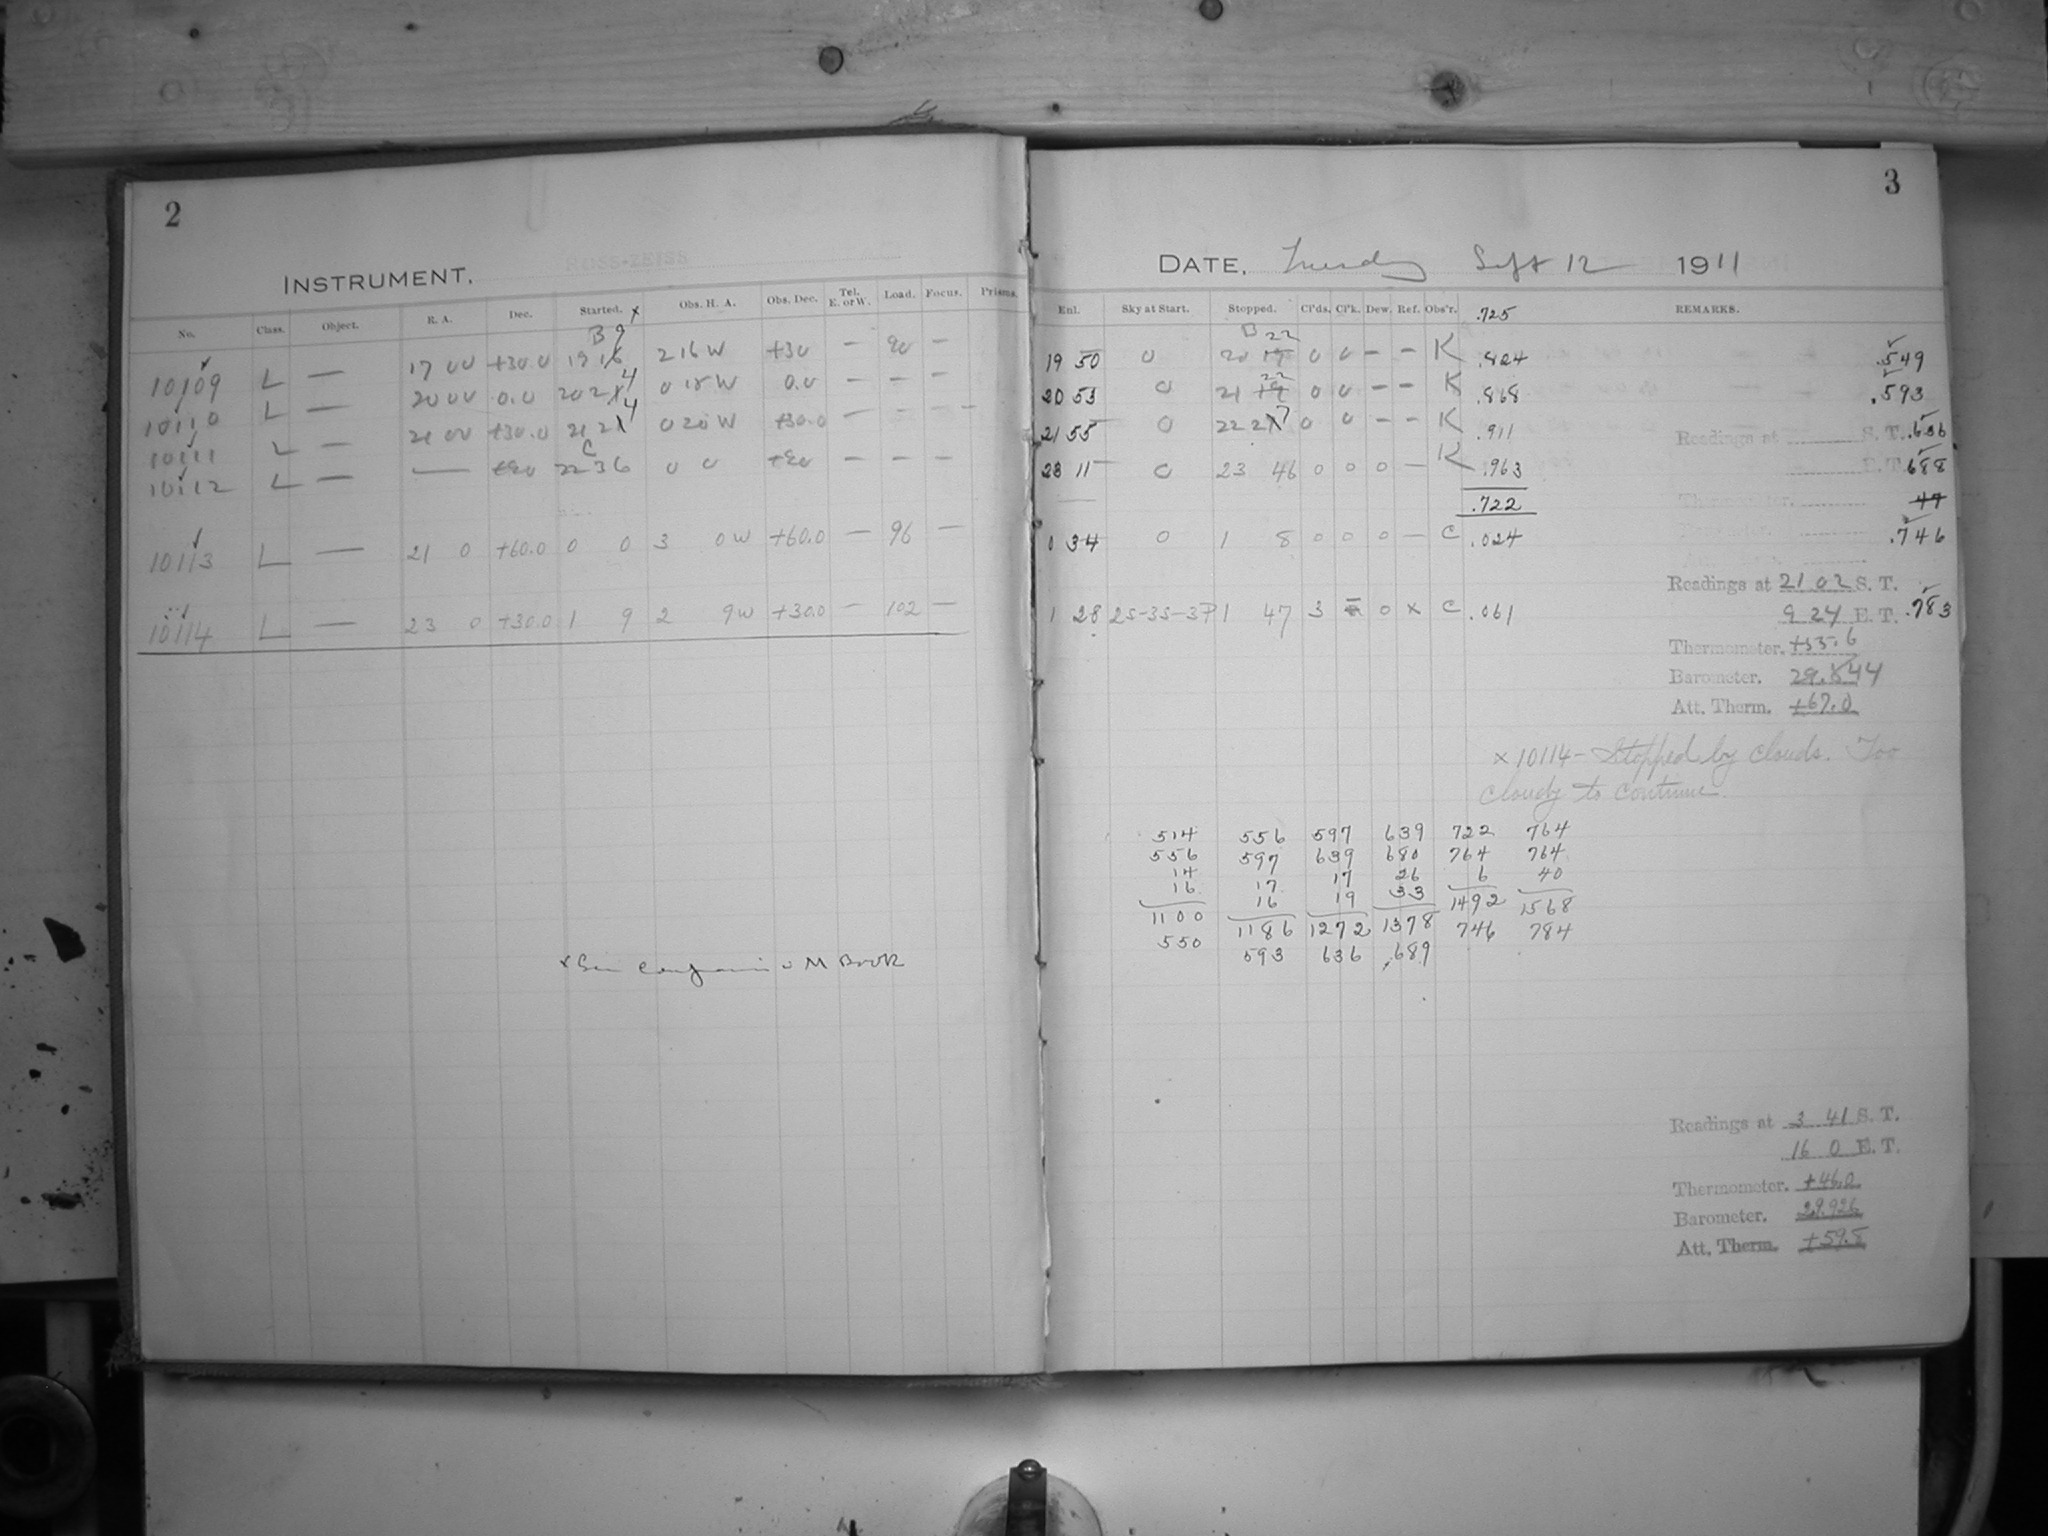 2
INSTRUMENT, ROSS-ZEISS
No. Class. Object. R. A. Dec. Started. x Obs. H. A. Obs. Dec. Tel. E. or W. Load. Focus. Prisms.
10109 L — 17 00 +30.0 19 16 9 2 16 W +30 — 90 —
10110 L — 20 00 0.0 20 2 4 0 18 W 0.0 — — —
10111 L — 21 00 +30.0 21 2 4 0 20 W +30.0 — — —
10112 L — — 22 36 0 0 — — —
10113 L — 21 0 +60.0 0 0 3 0 W +60.0 — 96 —
10114 L — 23 0 +30.0 1 9 2 9 W +30.0 — 102 —
x See M Book
3
DATE, Tuesday Sept 12 1911
Enl. Sky at Start. Stopped. Cl'ds. Cl'k. Dew. Ref. Obs'r. .725 REMARKS.
19 50 0 20 22 0 0 — — K .824 .549
20 53 0 21 22 0 0 — — K .868 .593
21 55 0 22 27 0 0 — — K .911 .636
Readings at S. T.
23 11 0 23 46 0 0 0 — K .963 E. T. .688
.722 47
0 34 0 1 8 0 0 0 — C .024 .746
1 28 25-35-37 1 47 3 0 x C .061 .783
Readings at 21 02 S. T.
9 24 E. T.
Thermometer. +55.6
Barometer. 29.844
Att. Therm. +67.0
x 10114 - Stopped by clouds. Too
cloudy to continue.
514 556 597 639 722 764
556 597 639 680 764 764
14 17 17 26 6 40
16 16 19 33 1492 1568
1100 1186 1272 1378 746 784
550 593 636 .689
Readings at 3 41 S. T.
16 0 E. T.
Thermometer. +46.0
Barometer. 29.926
Att. Therm. +59.8